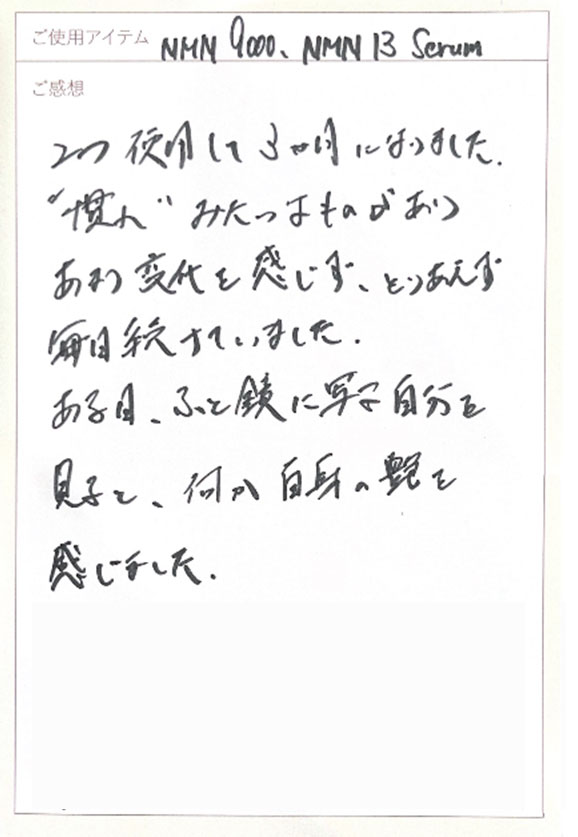 ご使用アイテム NMN 9000、NMN 13 Serum
ご感想
2つ使用して3ヶ月になりました.
"慣れ" みたいなものがあり
あまり変化を感じず、とりあえず
毎日続けていました.
ある日、ふと鏡に写る自分を
見ると、何か自身の艶を
感じました.